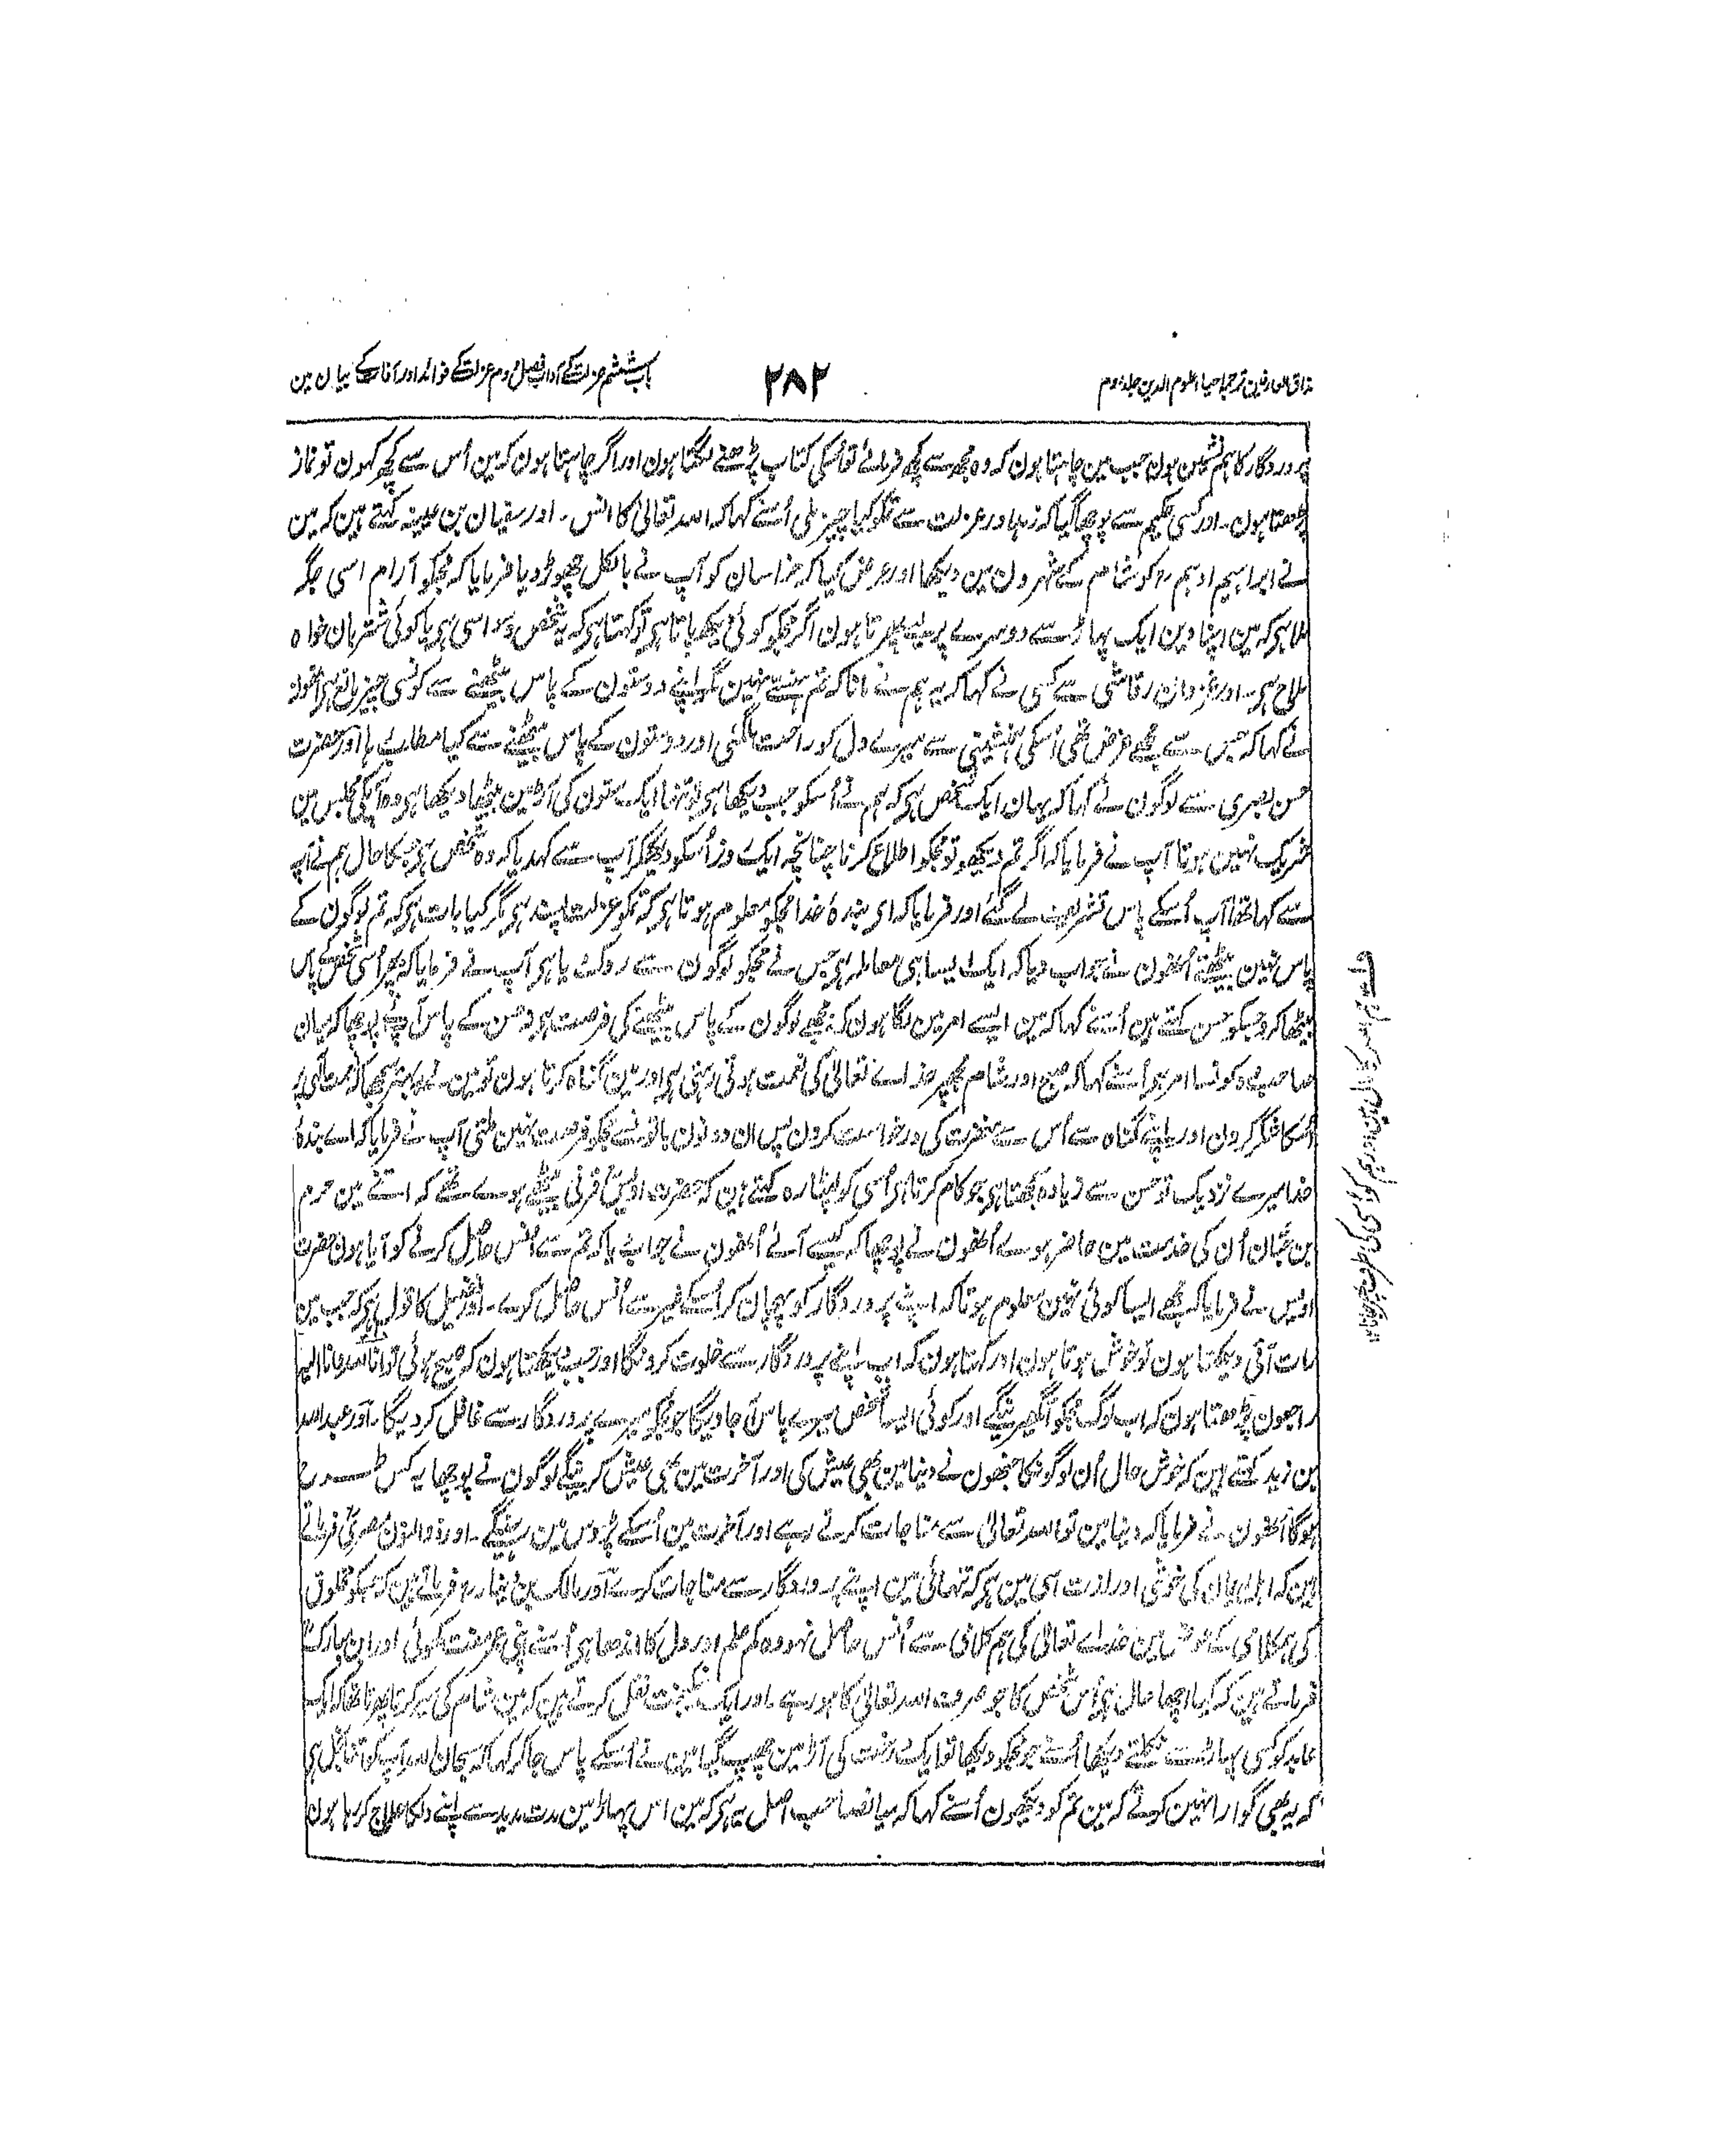 مذاق العارفین ترجمہ احیاء علوم الدین جلد دوم
۲۸۲
باب ششم عزلت کے آداب فصل دوم عزلت کے فوائد اور آفات کے بیان مین
پروردگار کا ہم نشین ہون جب مین چاہتا ہون کہ وہ مجھ سے کچھ فرمائے تو اُسکی کتاب پڑھنے لگتا ہون اور اگر چاہتا ہون کہ مین اُس سے کچھ کہون تو نماز
پڑھتا ہون ۔ اور کسی حکیم سے پوچھا گیا کہ زہد اور عزلت سے تمکو کیا چیز ملی اُسنے کہا کہ اللہ تعالیٰ کا انس ۔ اور سفیان بن عیینہ کہتے ہین کہ مین
نے ابراہیم ادہم رہ کو شام کے شہرون مین دیکھا اور عرض کیا کہ خراسان کو آپ نے بالکل چھوڑ دیا فرمایا کہ مجکو آرام اسی جگہ
ملا ہی کہ مین اپنا دین ایک پہاڑ سے دوسرے پر لیے پھرتا ہون اگر مجکو کوئی دیکھ پاتا ہی تو کہتا ہی کہ یہ شخص وسواسی ہی یا کوئی شتربان خواہ
ملاح ہی ۔ اور غزوان رقاشی سے کسی نے کہا کہ یہ ہم نے مانا کہ تم ہنستے نہین مگر اپنے دوستون کے پاس بیٹھنے سے کونسی چیز مانع ہی اُنھون
نے کہا کہ جس سے مجھے غرض تھی اُسکی ہمنشینی سے میرے دل کو راحت ملگئی اور دوستون کے پاس بیٹھنے سے کیا مطلب رہا اور حضرت
حسن بصری سے لوگون نے کہا کہ یہان ایک شخص ہی کہ ہم نے اُسکو جب دیکھا ہی تو تنہا ایک ستون کی آڑ مین بیٹھا دیکھا ہی وہ آپکی مجلس مین
شریک نہین ہوتا آپ نے فرمایا کہ اگر تم دیکھو تو مجکو اطلاع کرنا چنانچہ ایک روز اُسکو دیکھکر آپ سے کہدیا کہ وہ شخص ہی جسکا حال ہم نے آپ
سے کہا تھا آپ اُسکے پاس تشریف لے گئے اور فرمایا کہ ای بندہ خدا مجکو معلوم ہوتا ہی کہ تمکو عزلت پسند ہی مگر کیا بات ہی کہ تم لوگون کے
پاس نہین بیٹھتے اُنھون نے جواب دیا کہ ایک ایسا ہی معاملہ ہی جس نے مجکو لوگون سے روکدیا ہی آپ نے فرمایا کہ پھر اُسی شخص کے پاس
بیٹھا کرو جسکو حسن کہتے ہین اُسنے کہا کہ مین ایسے امر مین لگا ہون کہ نہ مجھے لوگون کے پاس بیٹھنے کی فرصت ہی نہ حسن کے پاس آپنے پوچھا کہ میان
صاحب وہ کونسا امر ہی اُسنے کہا کہ صبح اور شام مجھپر خداے تعالیٰ کی نعمت ہوتی رہتی ہی اور مین گناہ کرتا ہون تو مین نے بہتر سمجھا کہ نعمت الٰہی پر
اُسکا شکر کرون اور اپنے گناہ سے اُس سے مغفرت کی درخواست کرون پس ان دونون باتونسے مجکو فرصت نہین ملتی آپ نے فرمایا کہ اے بندہ
خدا میرے نزدیک تو حسن سے زیادہ سمجھتا ہی جو کام کرتا ہی اُسی کو کرتا رہ کہتے ہین کہ حضرت اویس قرنی بیٹھے ہوے تھے کہ اتنے مین ہرم
بن حیان اُن کی خدمت مین حاضر ہوے اُنھون نے پوچھا کہ کیسے آئے اُنھون نے جواب دیا کہ تم سے اُنس حاصل کرنے کو آیا ہون حضرت
اویس نے فرمایا کہ مجھے ایسا کوئی نہین معلوم ہوتا کہ اپنے پروردگار کو پہچان کر اُسکے غیر سے اُنس حاصل کرے ۔ اور فضیل کا قول ہی کہ جب مین
رات آتی دیکھتا ہون تو خوش ہوتا ہون اور کہتا ہون کہ اب اپنے پروردگار سے خلوت کرونگا اور جب دیکھتا ہون کہ صبح ہوئی تو انا للہ وانا الیہ
راجعون پڑھتا ہون کہ اب لوگ مجکو آ گھیرینگے اور کوئی ایسا شخص میرے پاس آجاویگا جو مجکو میرے پروردگار سے غافل کردیگا ۔ اور عبداللہ
بن زید کہتے ہین کہ خوش حال اُن لوگونکا جنھون نے دنیا مین بھی عیش کی اور آخرت مین بھی عیش کرینگے لوگون نے پوچھا یہ کس طرح
ہوگا اُنھون نے فرمایا کہ دنیا مین تو اللہ تعالیٰ سے مناجات کرتے رہے اور آخرت مین اُسکے پڑوس مین رہینگے ۔ اور ذوالنون مصری فرماتے
ہین کہ ایمان کی خوشی اور لذت اسی مین ہی کہ تنہائی مین اپنے پروردگار سے مناجات کرے اور مالک بن دینار رہ فرماتے ہین کہ جسکو مخلوق
کی ہمکلامی کے عوض مین خداے تعالیٰ کی ہم کلامی سے اُنس حاصل نہو وہ کم علم اور دل کا اندھا ہی اُسنے اپنی عمر مفت کھوئی اور ابن مبارک
فرماتے ہین کہ کیا اچھا حال ہی اُس شخص کا جو صرف اللہ تعالیٰ کا ہو رہے ۔ اور ایک نیکبخت نقل کرتے ہین کہ مین شام کی سیر کرتا پھرتا تھا کہ ایک
عابد کو کسی پہاڑ سے نکلتے دیکھا اُسنے جو مجکو دیکھا تو ایک درخت کی آڑ مین چھپ گیا مین نے اُسکے پاس جاکر کہا کہ سبحان اللہ آپ کو اتنا بخل ہی
کہ یہ بھی گوارا نہین کرتے کہ مین تم کو دیکھون اُسنے کہا کہ میانصاحب اصل یہ ہی کہ مین اس پہاڑ مین مدت مدید سے اپنے دلکا علاج کر رہا ہون
ہم اللہ کے مال ہین اور ہم کو اُسی کی طرف پھر جانا ہے